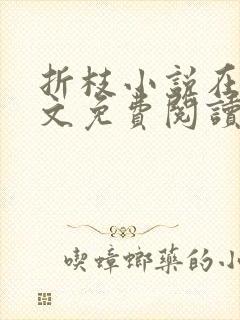 折枝小说在
文免費閱讀
喫蟑螂藥的小